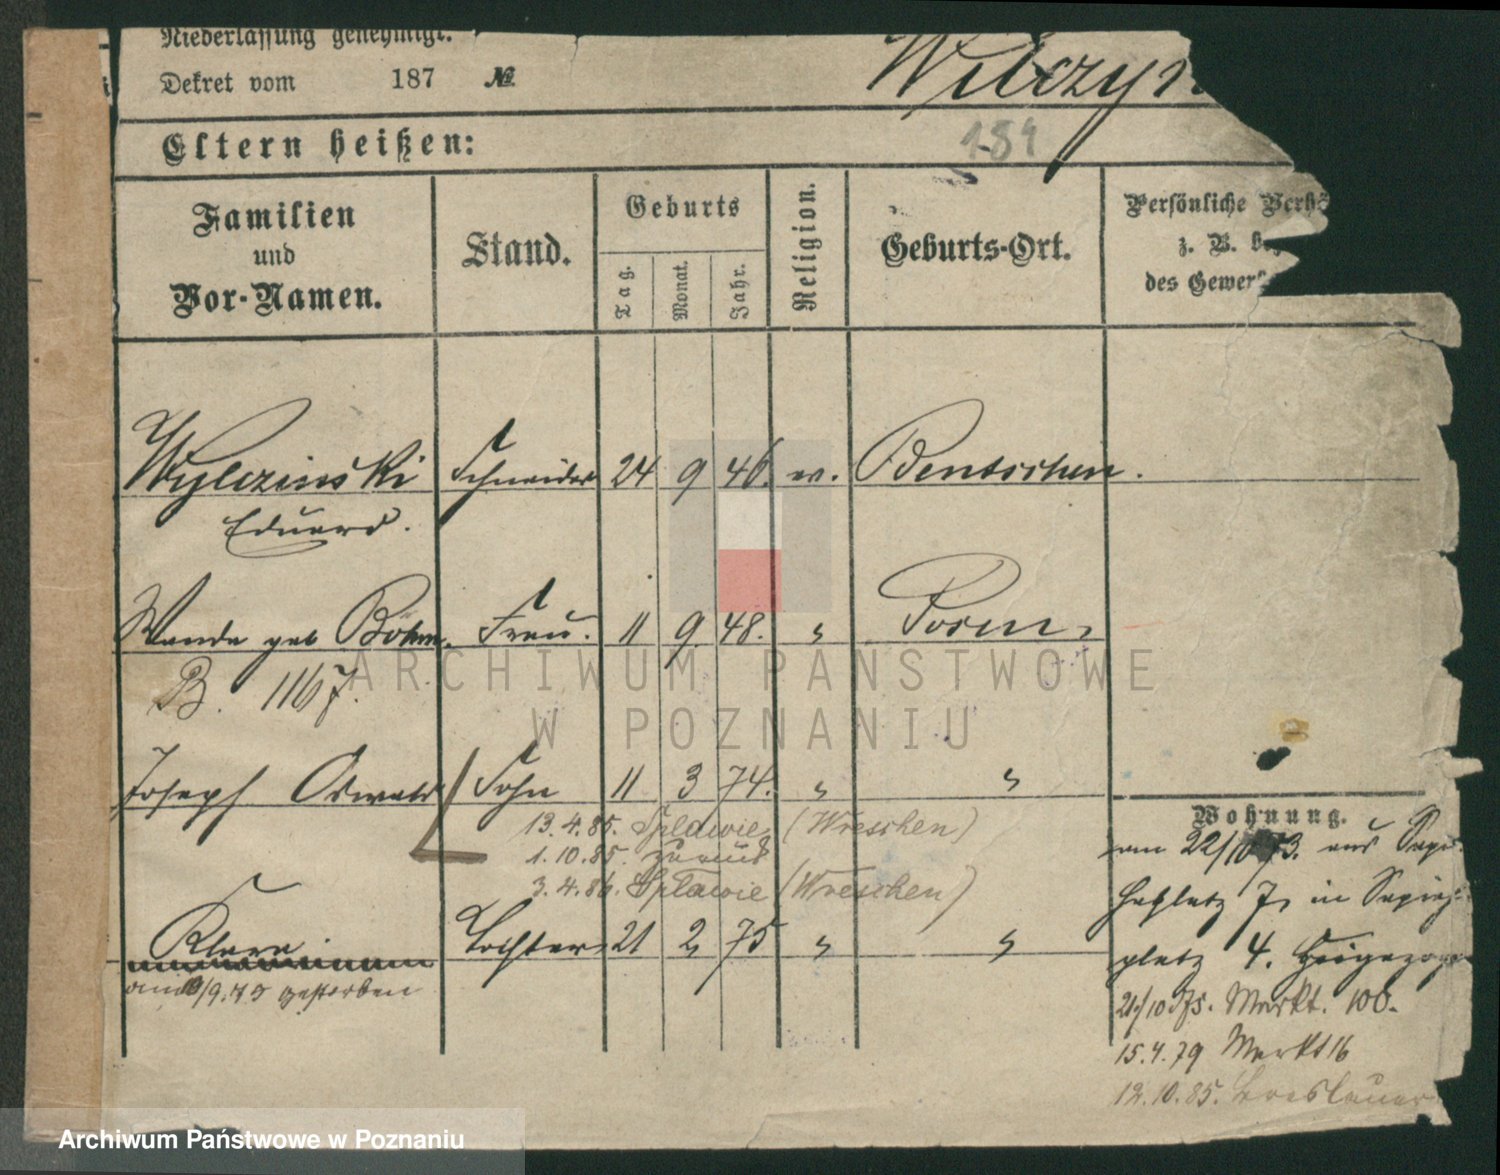 Niederlassung genehmigt.
Dekret vom 187 №
Wilczyn
Eltern heißen:
184
Familien und Vor-Namen.
Stand.
Geburts
Tag.
Monat.
Jahr.
Religion.
Geburts-Ort.
Persönliche
z. B.
des
Wylczinski Schneider 24 9 46. ev. Bentschen.
Eduard.
Wanda geb Böhm. Frau. 11 9 48. " Posen,
B. 1167.
ARCHIWUM PAŃSTWOWE
W POZNANIU
Joseph Oswald Sohn 11 3 74. " "
13.4.85. Splawie (Wreschen)
1.10.85. zurück
3.4.86. Splawie (Wreschen)
Klara Tochter 21 2 75 " "
gestorben
Wohnung.
am 22/10 73. aus
platz 7, in
platz 4.
21/10 75. Markt. 100.
15.4.79 Markt 16
12.10.85. Breslauer
Archiwum Państwowe w Poznaniu